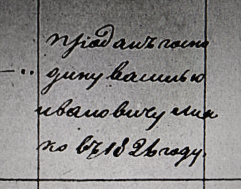 пріѳданъ госпо
дину василью
ивановичу мин
ко въ 1826 году.